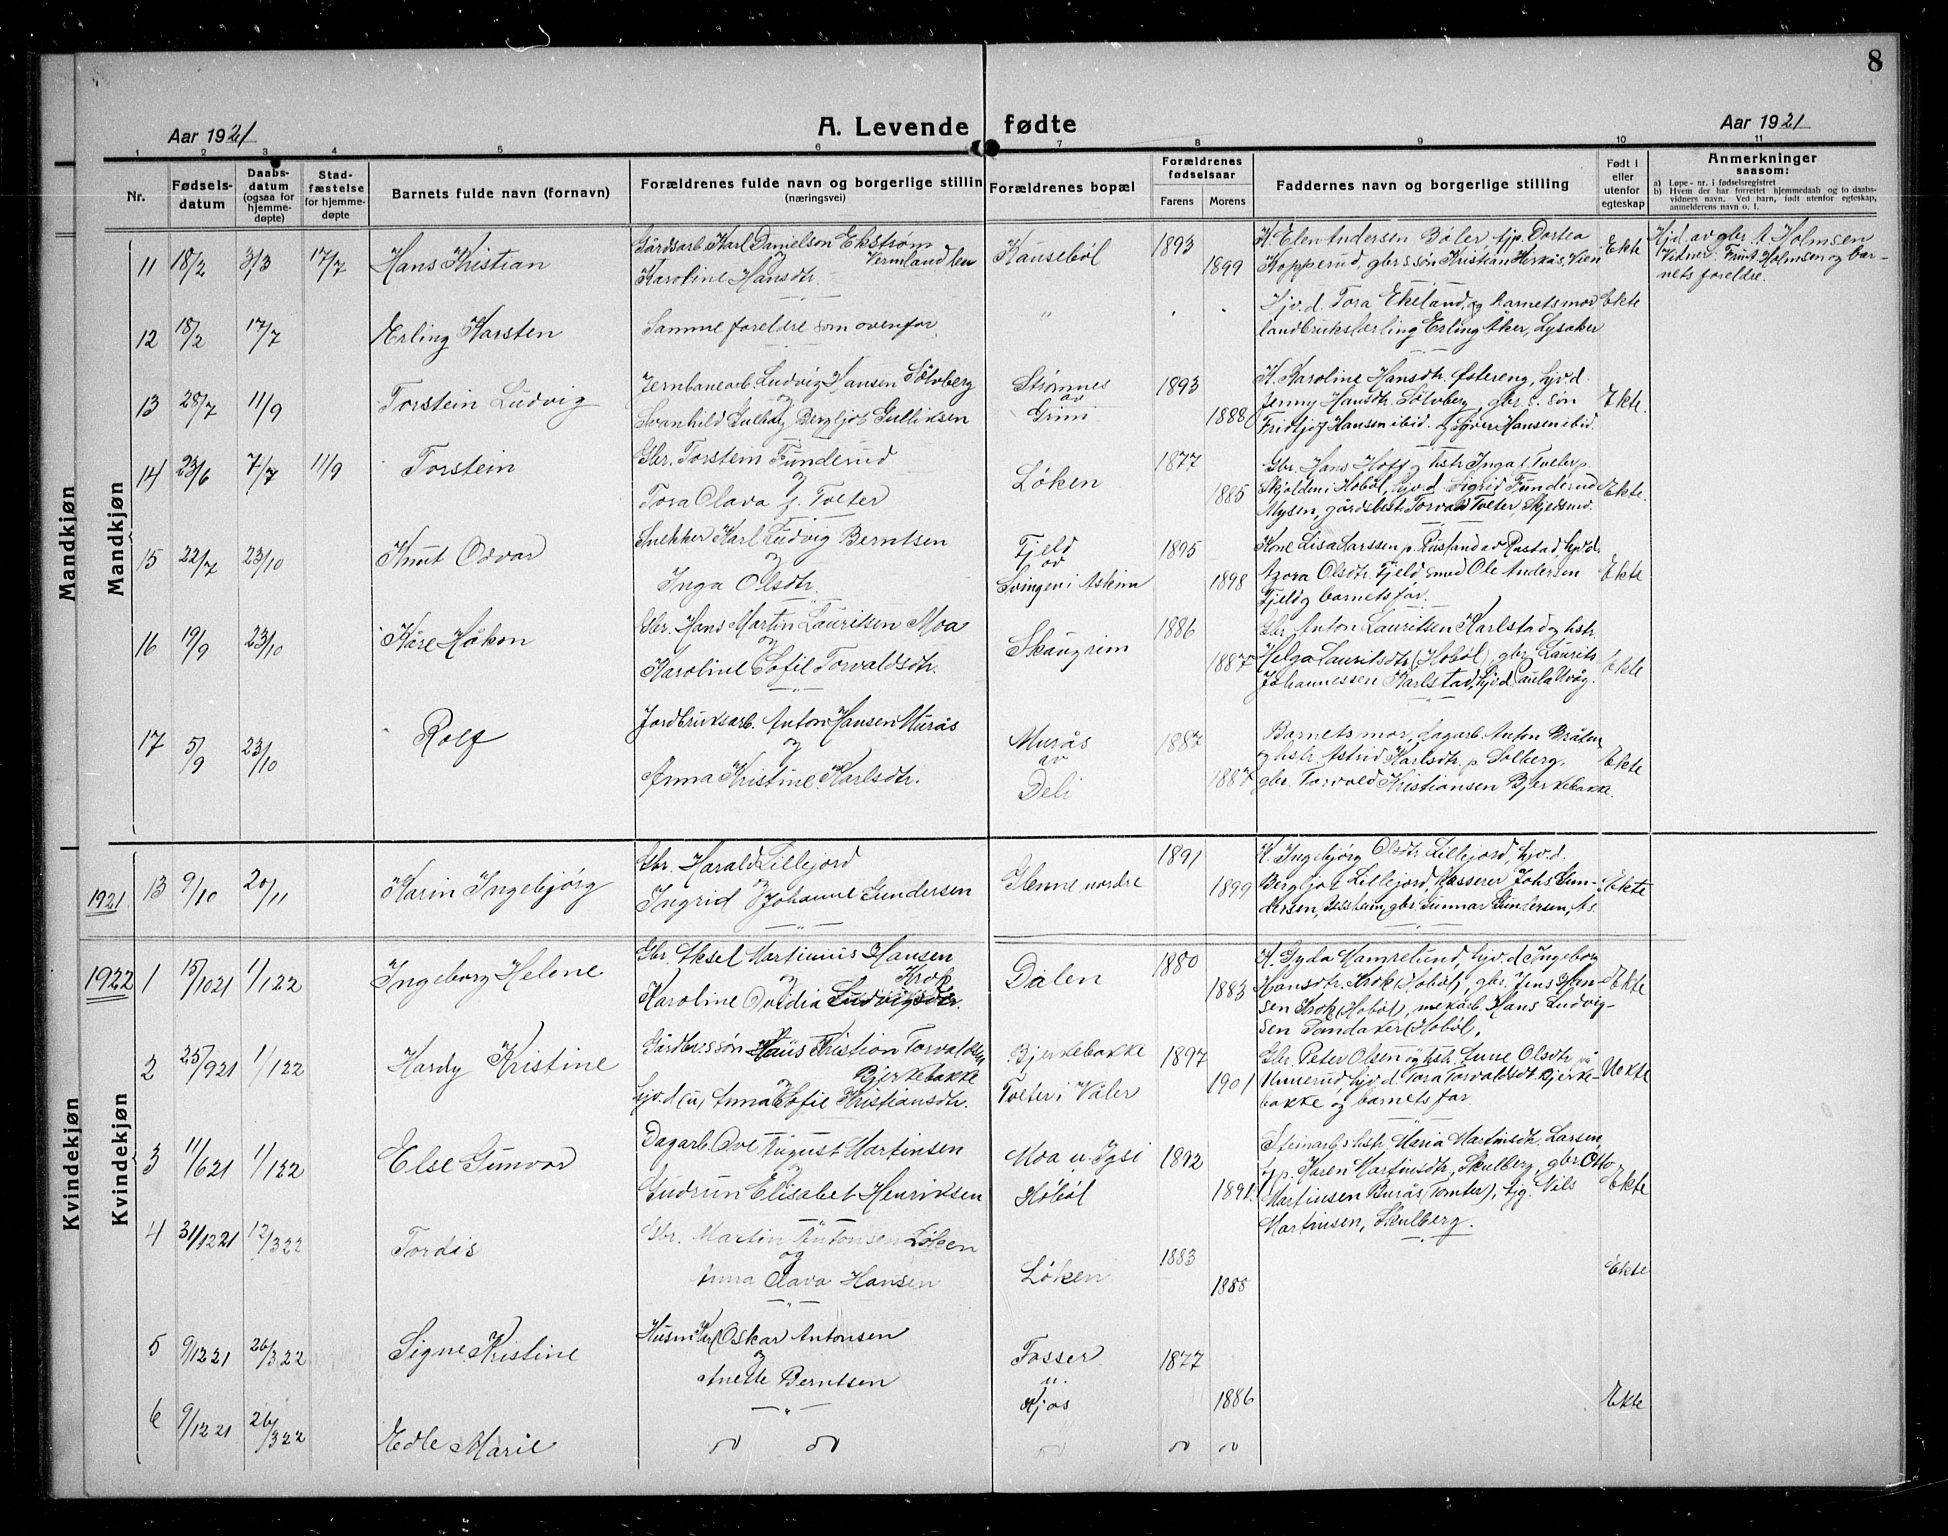 8
Aar 1921
A. Levende fødte
Aar 1921
1 2 3 4 5 6 7 8 9 10 11
Nr.
Fødsels-
datum
Daabs-
datum
(ogsaa for
hjemme-
døpte)
Stad-
fæstelse
for hjemme-
døpte
Barnets fulde navn (fornavn)
Forældrenes fulde navn og borgerlige stilling
(næringsvei)
Forældrenes bopæl
Forældrenes
fødselsaar
Farens Morens
Faddernes navn og borgerlig stilling
Født i
eller
utenfor
egteskap
Anmerkninger
saasom:
a) Løpe-nr. i fødselsregistret
b) Hvem der har forrettet hjemmedaab og to daabs-
vidners navn. Ved barn, født utenfor egteskap,
anmelderens navn o. l.
Mandkjøn
Mandkjøn
11 18/2 3/3 17/7 Hans Kristian
Gårdsarb. Karl Danielson Ekstrøm
og Vermland len
Karoline Hansdtr.
Kausebøl 1893 1899
K. Elen Andersen Bøler, tjp. Dortea
Kopperud, gbrs søn Kristian Herkås, Vien
Ekte
Hjd. av gbr. A. Holmsen
Vidner: Fru Holmsen og bar-
nets foreldre.
12 18/2 17/7 Erling Karsten
Samme foreldre som ovenfor
" . .
Hjv.d. Tora Ekeland, og barnets mor
landbrukslærling Erling Aker, Lysaker
Ekte
13 28/7 11/9 Torstein Ludvig
Jernbanearb. Ludvig Hansen Sölvberg
og
Svanhild Solborg Bergljot Gulliksen
Strømnes
av
Grini
1893 1888
K. Karoline Hansdtr. Østereng, hjv.d.
Jenny Hansdtr. Sölvberg, gbr.s. søn
Fridtjof Hansen ibid. og Syver Hansen ibid
Ekte.
14 23/6 7/7 11/9 Torstein
Gbr. Torstein Funderud
og
Tora Olava f. Tveter
Løken 1877 1885
Gbr. Hans Hoff og hstr Inga f. Tveter p.
Skjolden i Hobøl, hjv.d. Sigrid Funderud
Mysen, gårdsbest. Torvald Tveter Skjedsmo.
Ekte.
15 22/7 23/10 Knut Odvar
Snekker Karl Ludvig Berntsen
og
Inga Olsdtr.
Fjeld
av
Svingen i Askim
1895 1898
Kone Lisa Larssen p. Rustand av Rustad, hjv.d.
Azora Olsdtr. Fjeld smed Ole Andersen
Fjeld og barnets far.
Ekte
16 19/9 23/10 Kåre Håkon
Gbr. Hans Martin Lauritsen Moa
og
Karoline Sofie Torvaldsdtr.
Skaugrim 1886 1887
Gbr. Anton Lauritsen Karlstad og hstr.
Helga Lauritsdtr. (Hobøl) gbr. Laurits
Johannessen Karlstad, hjv.d. Paula Våg.
Ekte
17 5/9 23/10 Rolf
Jordbruksarb. Anton Hansen Murås
og
Anna Kristine Karlsdtr.
Murås
av
Deli
1887 1887
Barnets mor, dagarb. Anton Bråten
og hstr. Astrid Karlsdtr. p. Solberg,
gbr. Torvald Kristiansen Bjerkebakke.
Ekte
Kvindekjøn
Kvindekjøn
1921 13 9/10 20/11 Karin Ingebjørg
Gbr. Harald Lillejord
og
Ingrid Johanne Gundersen
Glenne nordre 1891 1899
K. Ingebjørg Olsdtr. Lillejord, hjv.d.
Bergljot Lillejord, kasserer Johs Gun-
dersen, gbr. Gunnar Gundersen, Ås
Ekte
1922 1 15/10 21 1/1 22 Ingeborg Helene
Gbr. Aksel Martinius Hansen
og Krok
Karoline Ovidia Ludvigsdtr.
Dalen 1880 1883
K. Gyda Kamrelund, hjv.d. Ingeborg
Hansdtr. Krok (Hobøl), gbr. Jens Han-
sen Krok (Hobøl), mekarb. Hans Ludvig-
sen Sandaker (Hobøl).
Ekte
2 25/9 21 1/1 22 Hardy Kristine
Gårdbrs søn Hans Kristian Torvaldsen
og Bjerkebakke
hjv.d (u) Anna Sofie Kristiansdtr.
Bjerkebakke
Tveter i Våler
1897 1901
Gbr. Peter Olsen og hstr. Anne Olsdtr på
Unnerud, hjv.d. Tora Torvaldsdtr. Bjerke-
bakke og barnets far
Uekte
3 11/6 21 1/1 22 Else Gunvor
Dagarb. Ove August Martinsen
og
Gudrun Elisabet Henriksen
Moa u. Igsi
Hobøl
1892 1891.
Steinarb.s hstr. Maria Martinsdtr. Larsen,
tjp. Karen Martinsdtr, Skulberg, gbr. Otto
Martinsen Burås (Tomter), tjg. Nils
Martinsen, Skulberg.
Ekte
4 31/12 21 12/3 22 Tordis
Gbr. Martin Antonsen Løken
og
Anna Olava Hansen
Løken 1883 1888 Ekte
5 9/12 21 26/3 22 Signe Kristine
Husm. Karl Oskar Antonsen
og
Anette Berntsen
Fosser
u.
Kjos
1877 1886 Ekte
6 9/12 21 26/3 22 Edle Marie